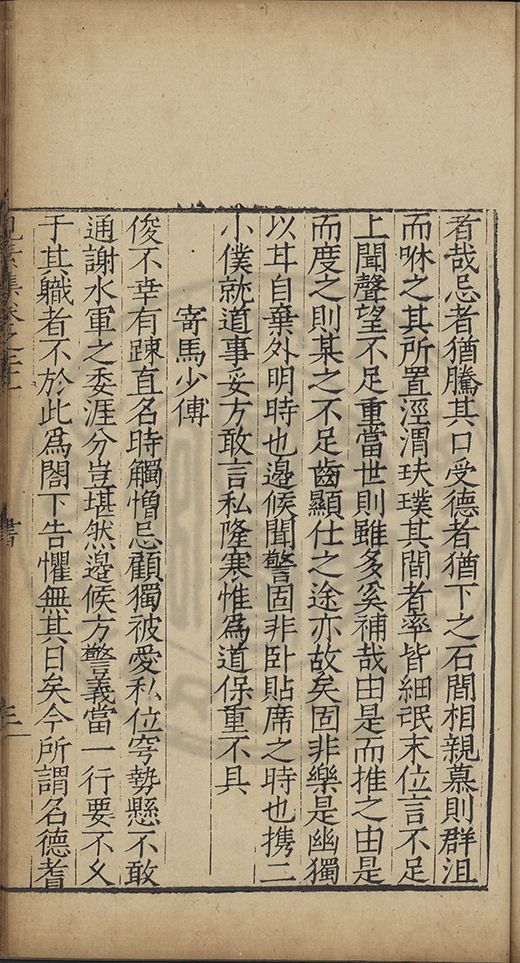 者哉忌者猶騰其口受德者猶下之石間相親慕則群沮
而咻之其所置涇渭玞璞其間者率皆細氓末位言不足
上聞聲望不足重當世則雖多奚補哉由是而推之由是
而度之則某之不足齒顯仕之途亦故矣固非樂是幽獨
以耳自棄外明時也邊候聞警固非卧貼席之時也携二
小僕就道事妥方敢言私隆寒惟為道保重不具
寄馬少傅
俊不幸有踈直名時觸憎忌顧獨被愛私位穹勢懸不敢
通謝水軍之委涯分豈堪然邊候方警義當一行要不乆
于其職者不於此為閣下告懼無其日矣今所謂名德耆
集卷之三十
書